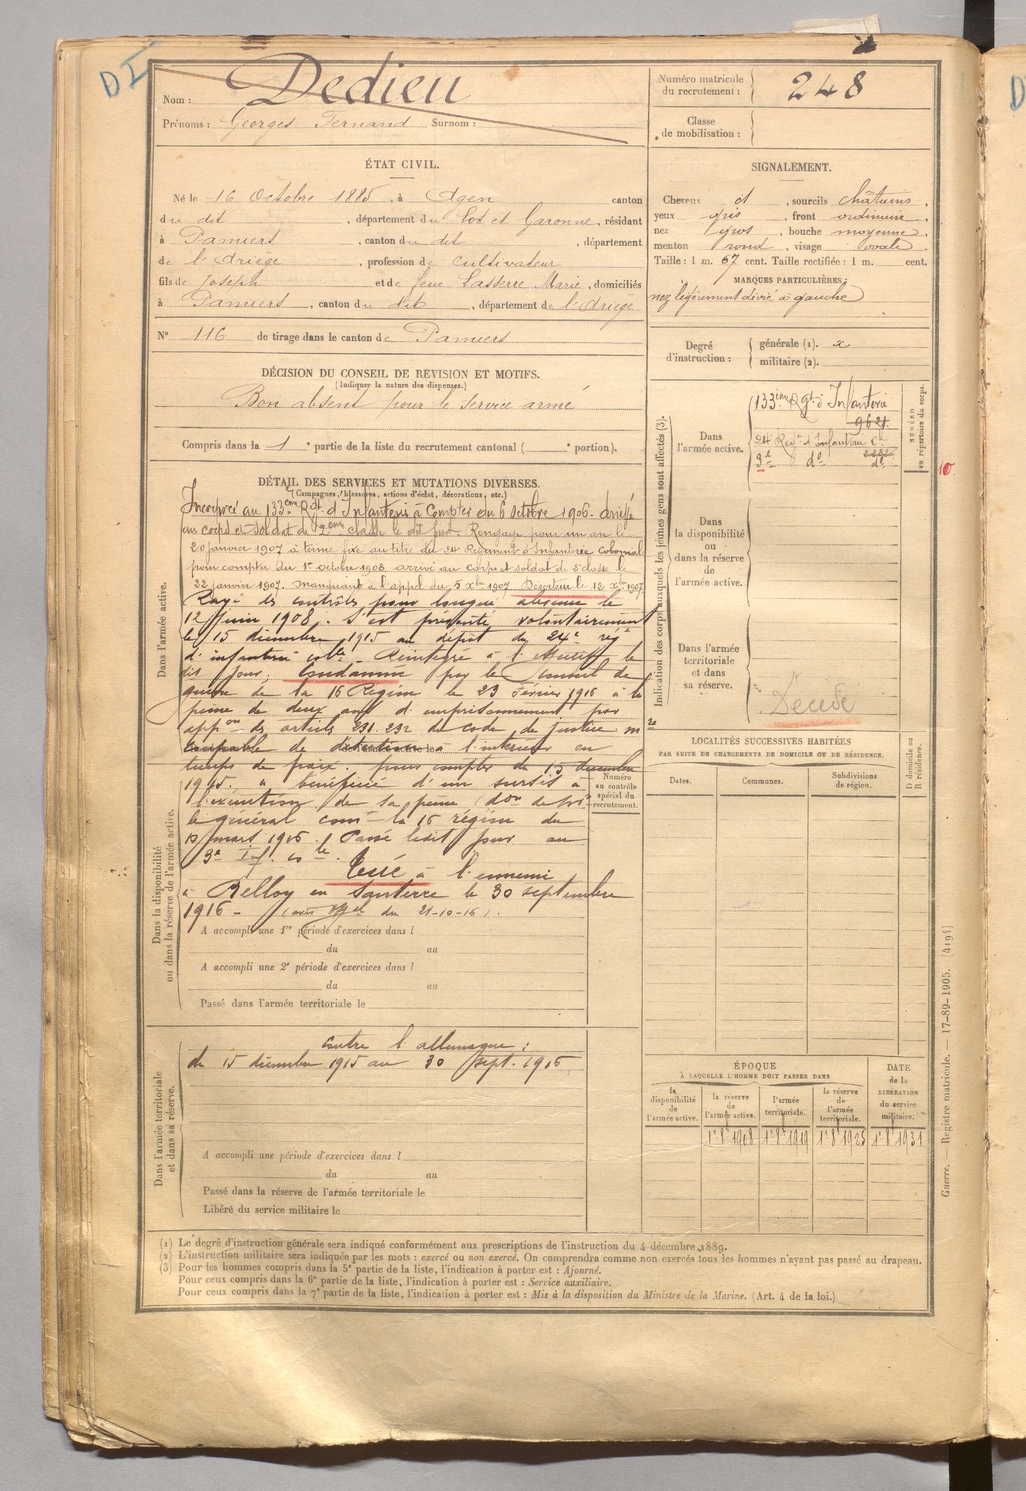 DI
Nom : Dedieu
Prénoms : Georges Fernand Surnom :
Numéro matricule du recrutement : 248
Classe de mobilisation :
ÉTAT CIVIL.
Né le 16 Octobre 1885, à Agen canton
du dit, département du Lot et Garonne, résidant
à Pamiers, canton du dit, département
de l'Ariège, profession de cultivateur
fils de Joseph et de feue Lasserre Marie, domiciliés
à Pamiers, canton du dit, département de l'Ariège
N° 116 de tirage dans le canton de Pamiers
SIGNALEMENT.
Cheveux et, sourcils châtains,
yeux gris, front ordinaire,
nez gros, bouche moyenne,
menton rond, visage ovale.
Taille : 1 m. 67 cent. Taille rectifiée : 1 m. cent.
MARQUES PARTICULIÈRES :
nez légèrement dévié à gauche
Degré d'instruction : générale (1). 2
militaire (2).
DÉCISION DU CONSEIL DE REVISION ET MOTIFS.
(Indiquer la nature des dispenses.)
Bon absent pour le service armé
Compris dans la 1 e partie de la liste du recrutement cantonal ( e portion).
DÉTAIL DES SERVICES ET MUTATIONS DIVERSES.
(Campagnes, blessures, actions d'éclat, décorations, etc.)
Dans l'armée active.
Incorporé au 133ème Rgt d'Infanterie à Compter du 6 octobre 1906. arrivé
au corps et soldat de 2ème classe le dit jour. Rengagé pour un an le
20 janvier 1907 à terme fixe au titre du 24 Régiment d'Infanterie Coloniale
pour compter du 1er octobre 1908, arrivé au corps et soldat de 2e classe le
22 janvier 1907. Manquant à l'appel du 5 Xbre 1907 Déserteur le 12 Xbre 1907
Rayé des contrôles pour longue absence le
12 juin 1908. S'est présenté volontairement
le 15 décembre 1915 au dépôt du 24e rég
d'infanterie colle Réintégré à l'effectif le
dit jour. Condamné par le Conseil de
guerre de la 16 Région le 23 Février 1916 à la
peine de deux ans d'emprisonnement par
appon des articles 231. 232 du code de justice mre
Coupable de désertion à l'intérieur en
temps de paix. pour compter du 15 décembre
1915. a bénéficié d'un sursis à
l'exécution de sa peine
le général comt la 16 région du
mars 1916. Passé ledit jour au
3e Inf. colle. Tué à l'ennemi
à Belloy en Santerre le 30 septembre
1916 – (avis du 21-10-16).
Numéro au contrôle spécial du recrutement.
Dans la disponibilité ou dans la réserve de l'armée active.
A accompli une 1re période d'exercices dans l
du au
A accompli une 2e période d'exercices dans l
du au
Passé dans l'armée territoriale le
Dans l'armée territoriale et dans sa réserve.
contre l'allemagne :
du 15 décembre 1915 au 30 sept. 1916
A accompli une période d'exercices dans l
du au
Passé dans la réserve de l'armée territoriale le
Libéré du service militaire le
Indication des corps auxquels les jeunes gens sont affectés (3).
NUMÉRO au répertoire du corps.
Dans l'armée active.
133ème Rgt d'Infanterie
9621
24 Regt d'Infanterie Cle
3e do do
10
Dans la disponibilité ou dans la réserve de l'armée active.
Dans l'armée territoriale et dans sa réserve.
Décédé
LOCALITÉS SUCCESSIVES HABITÉES
PAR SUITE DE CHANGEMENTS DE DOMICILE OU DE RÉSIDENCE.
Dates.
Communes.
Subdivisions de région.
D domicile ou R résidence.
ÉPOQUE
À LAQUELLE L'HOMME DOIT PASSER DANS
la disponibilité de l'armée active.
la réserve de l'armée active.
l'armée territoriale.
la réserve de l'armée territoriale.
DATE de la LIBÉRATION du service militaire.
1er 8 1908 1er 8 1919 1er 8 1925 1er 8 1931
Guerre. — Registre matricule. — 17-89-1905. [4195]
(1) Le degré d'instruction générale sera indiqué conformément aux prescriptions de l'instruction du 4 décembre 1889.
(2) L'instruction militaire sera indiquée par les mots : exercé ou non exercé. On comprendra comme non exercés tous les hommes n'ayant pas passé au drapeau.
(3) Pour les hommes compris dans la 5e partie de la liste, l'indication à porter est : Ajourné.
Pour ceux compris dans la 6e partie de la liste, l'indication à porter est : Service auxiliaire.
Pour ceux compris dans la 7e partie de la liste, l'indication à porter est : Mis à la disposition du Ministre de la Marine. (Art. 4 de la loi.)